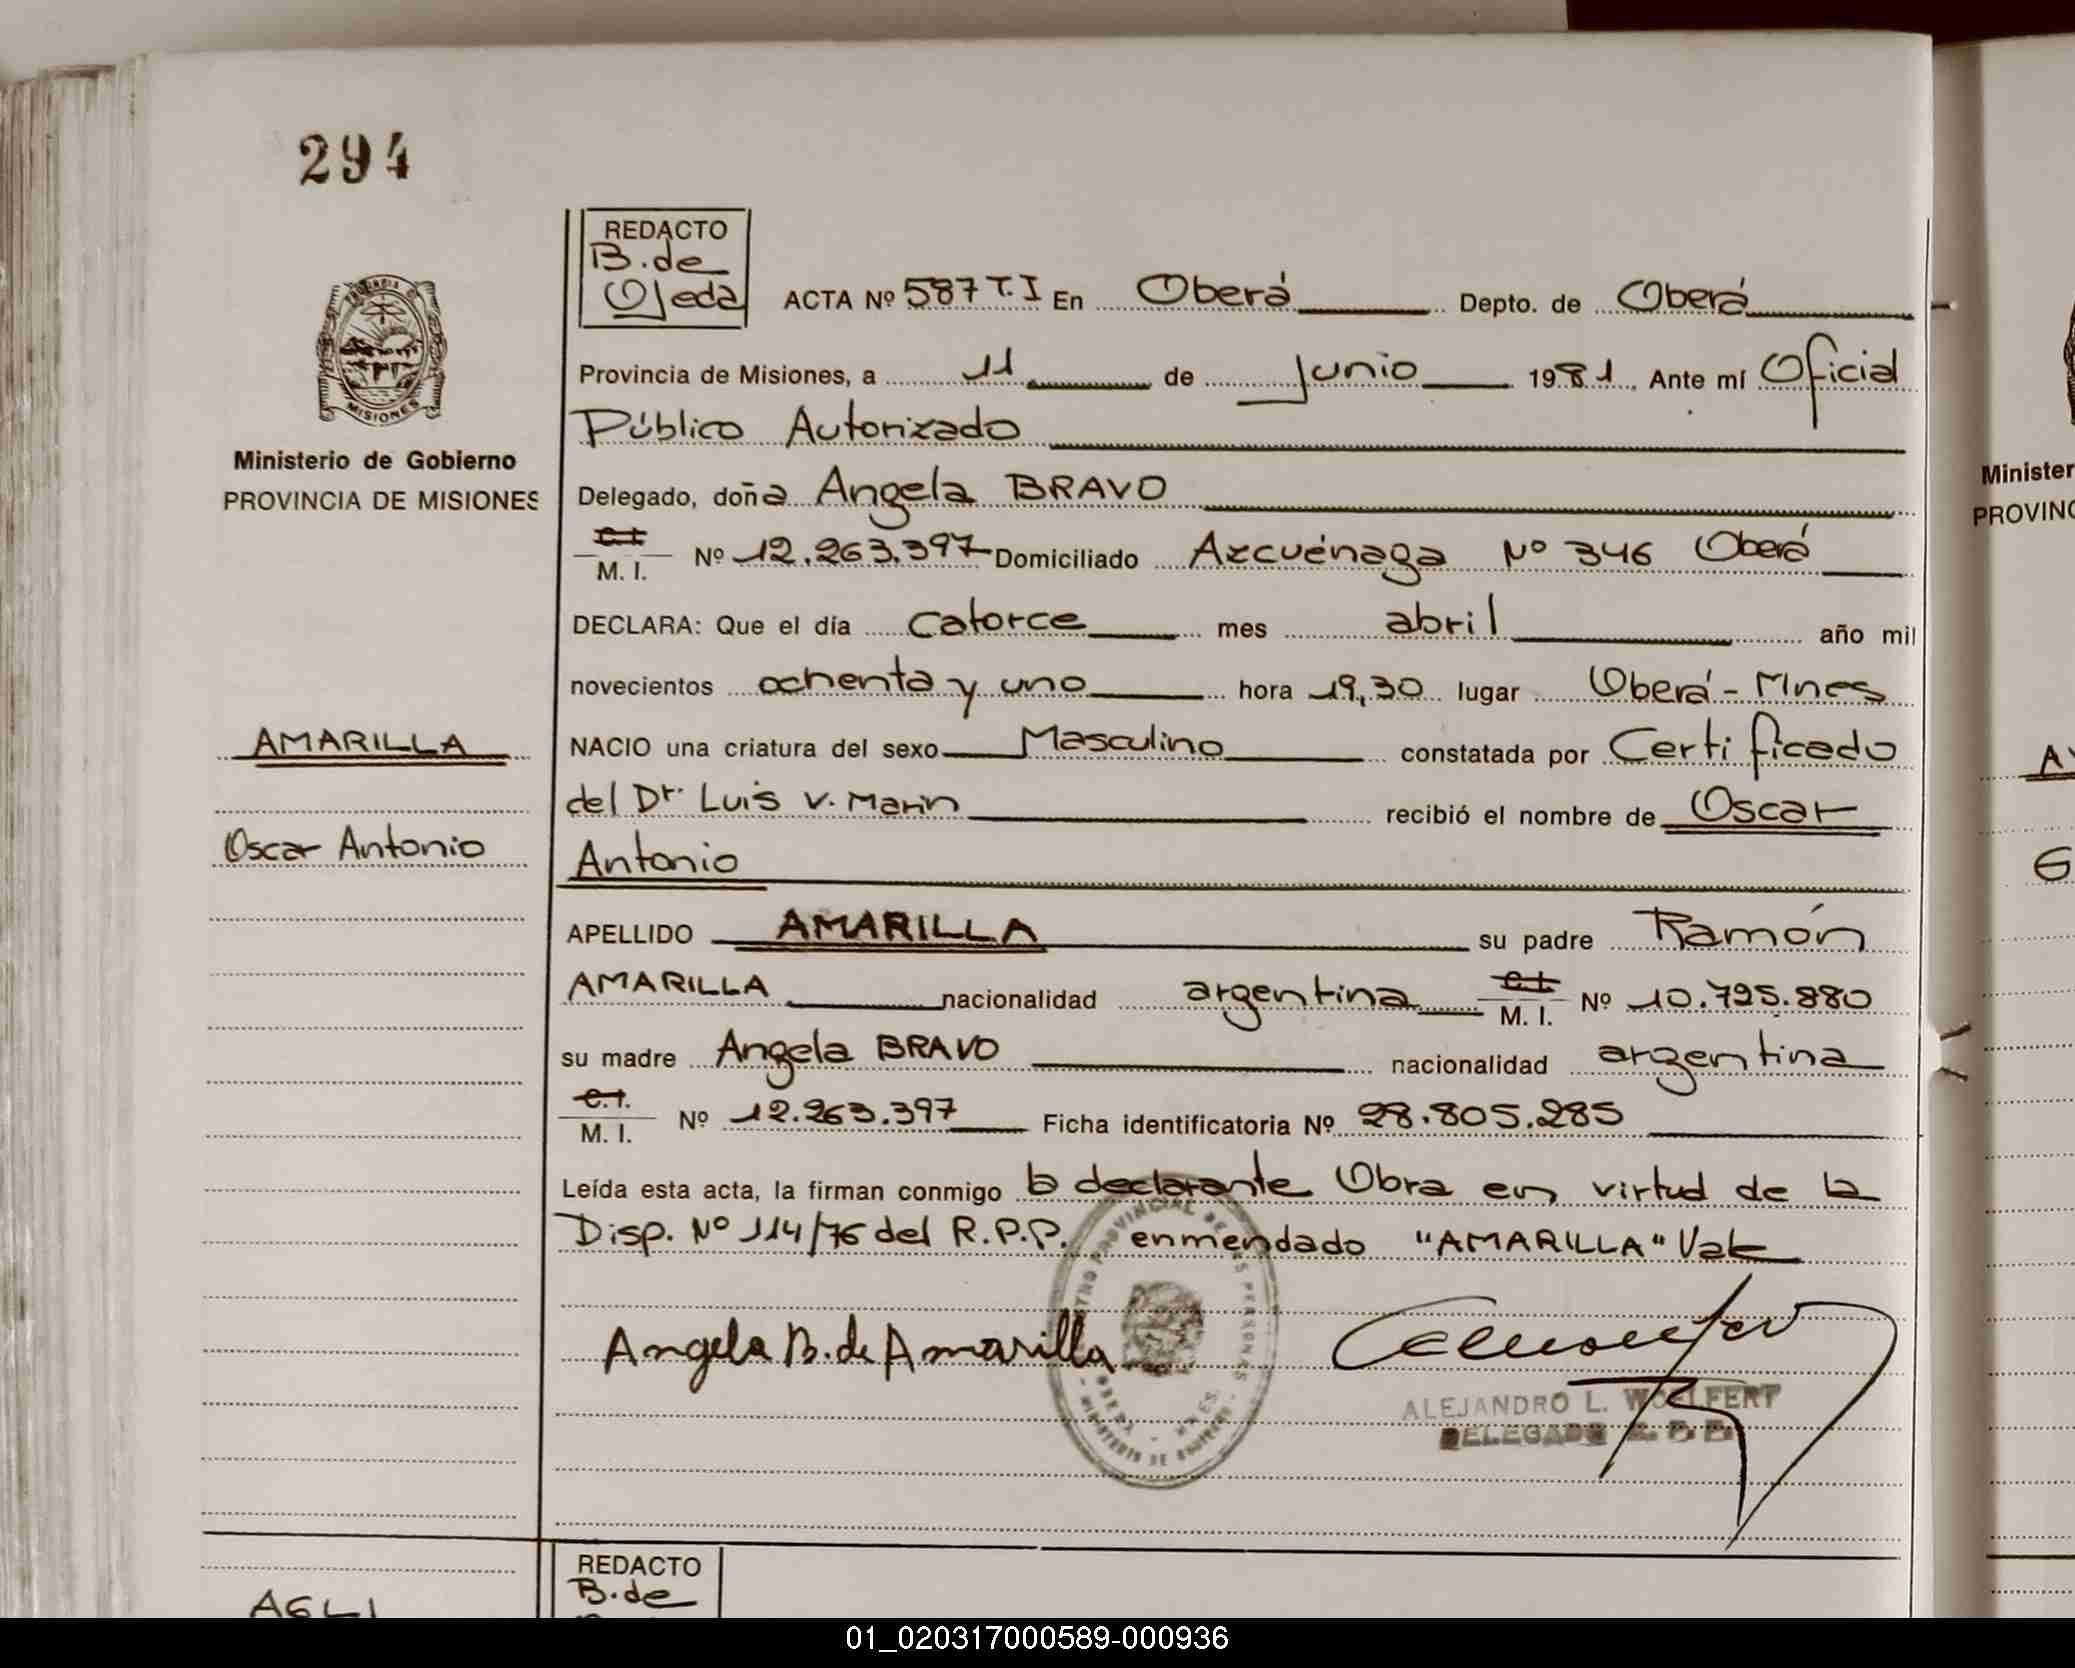 294
REDACTO
B. de
Ojeda
ACTA Nº 587 T.I En Oberá Depto. de Oberá
Provincia de Misiones, a 11 de Junio 1981 Ante mí Oficial
Público Autorizado
Delegado, doña Angela BRAVO
C.I. M. I. Nº 12.263.397 Domiciliado Azcuénaga Nº 346 Oberá
DECLARA: Que el día catorce mes abril año mil
novecientos ochenta y uno hora 19,30 lugar Oberá - Mnes
NACIO una criatura del sexo Masculino constatada por Certificado
del Dr. Luis V. Marin recibió el nombre de Oscar
Antonio
APELLIDO AMARILLA su padre Ramón
AMARILLA nacionalidad argentina C.I. M. I. Nº 10.795.880
su madre Angela BRAVO nacionalidad argentina
C.I. M. I. Nº 12.263.397 Ficha identificatoria Nº 28.805.285
Leída esta acta, la firman conmigo la declarante Obra en virtud de la
Disp. Nº 114/76 del R.P.P. enmendado "AMARILLA" Vale
Angela B. de Amarilla
ALEJANDRO L. WOELFERT
DELEGADO
PROVINCIA DE MISIONES
Ministerio de Gobierno
PROVINCIA DE MISIONES
AMARILLA
Oscar Antonio
REDACTO
B. de
Minister
PROVINC
01_020317000589-000936